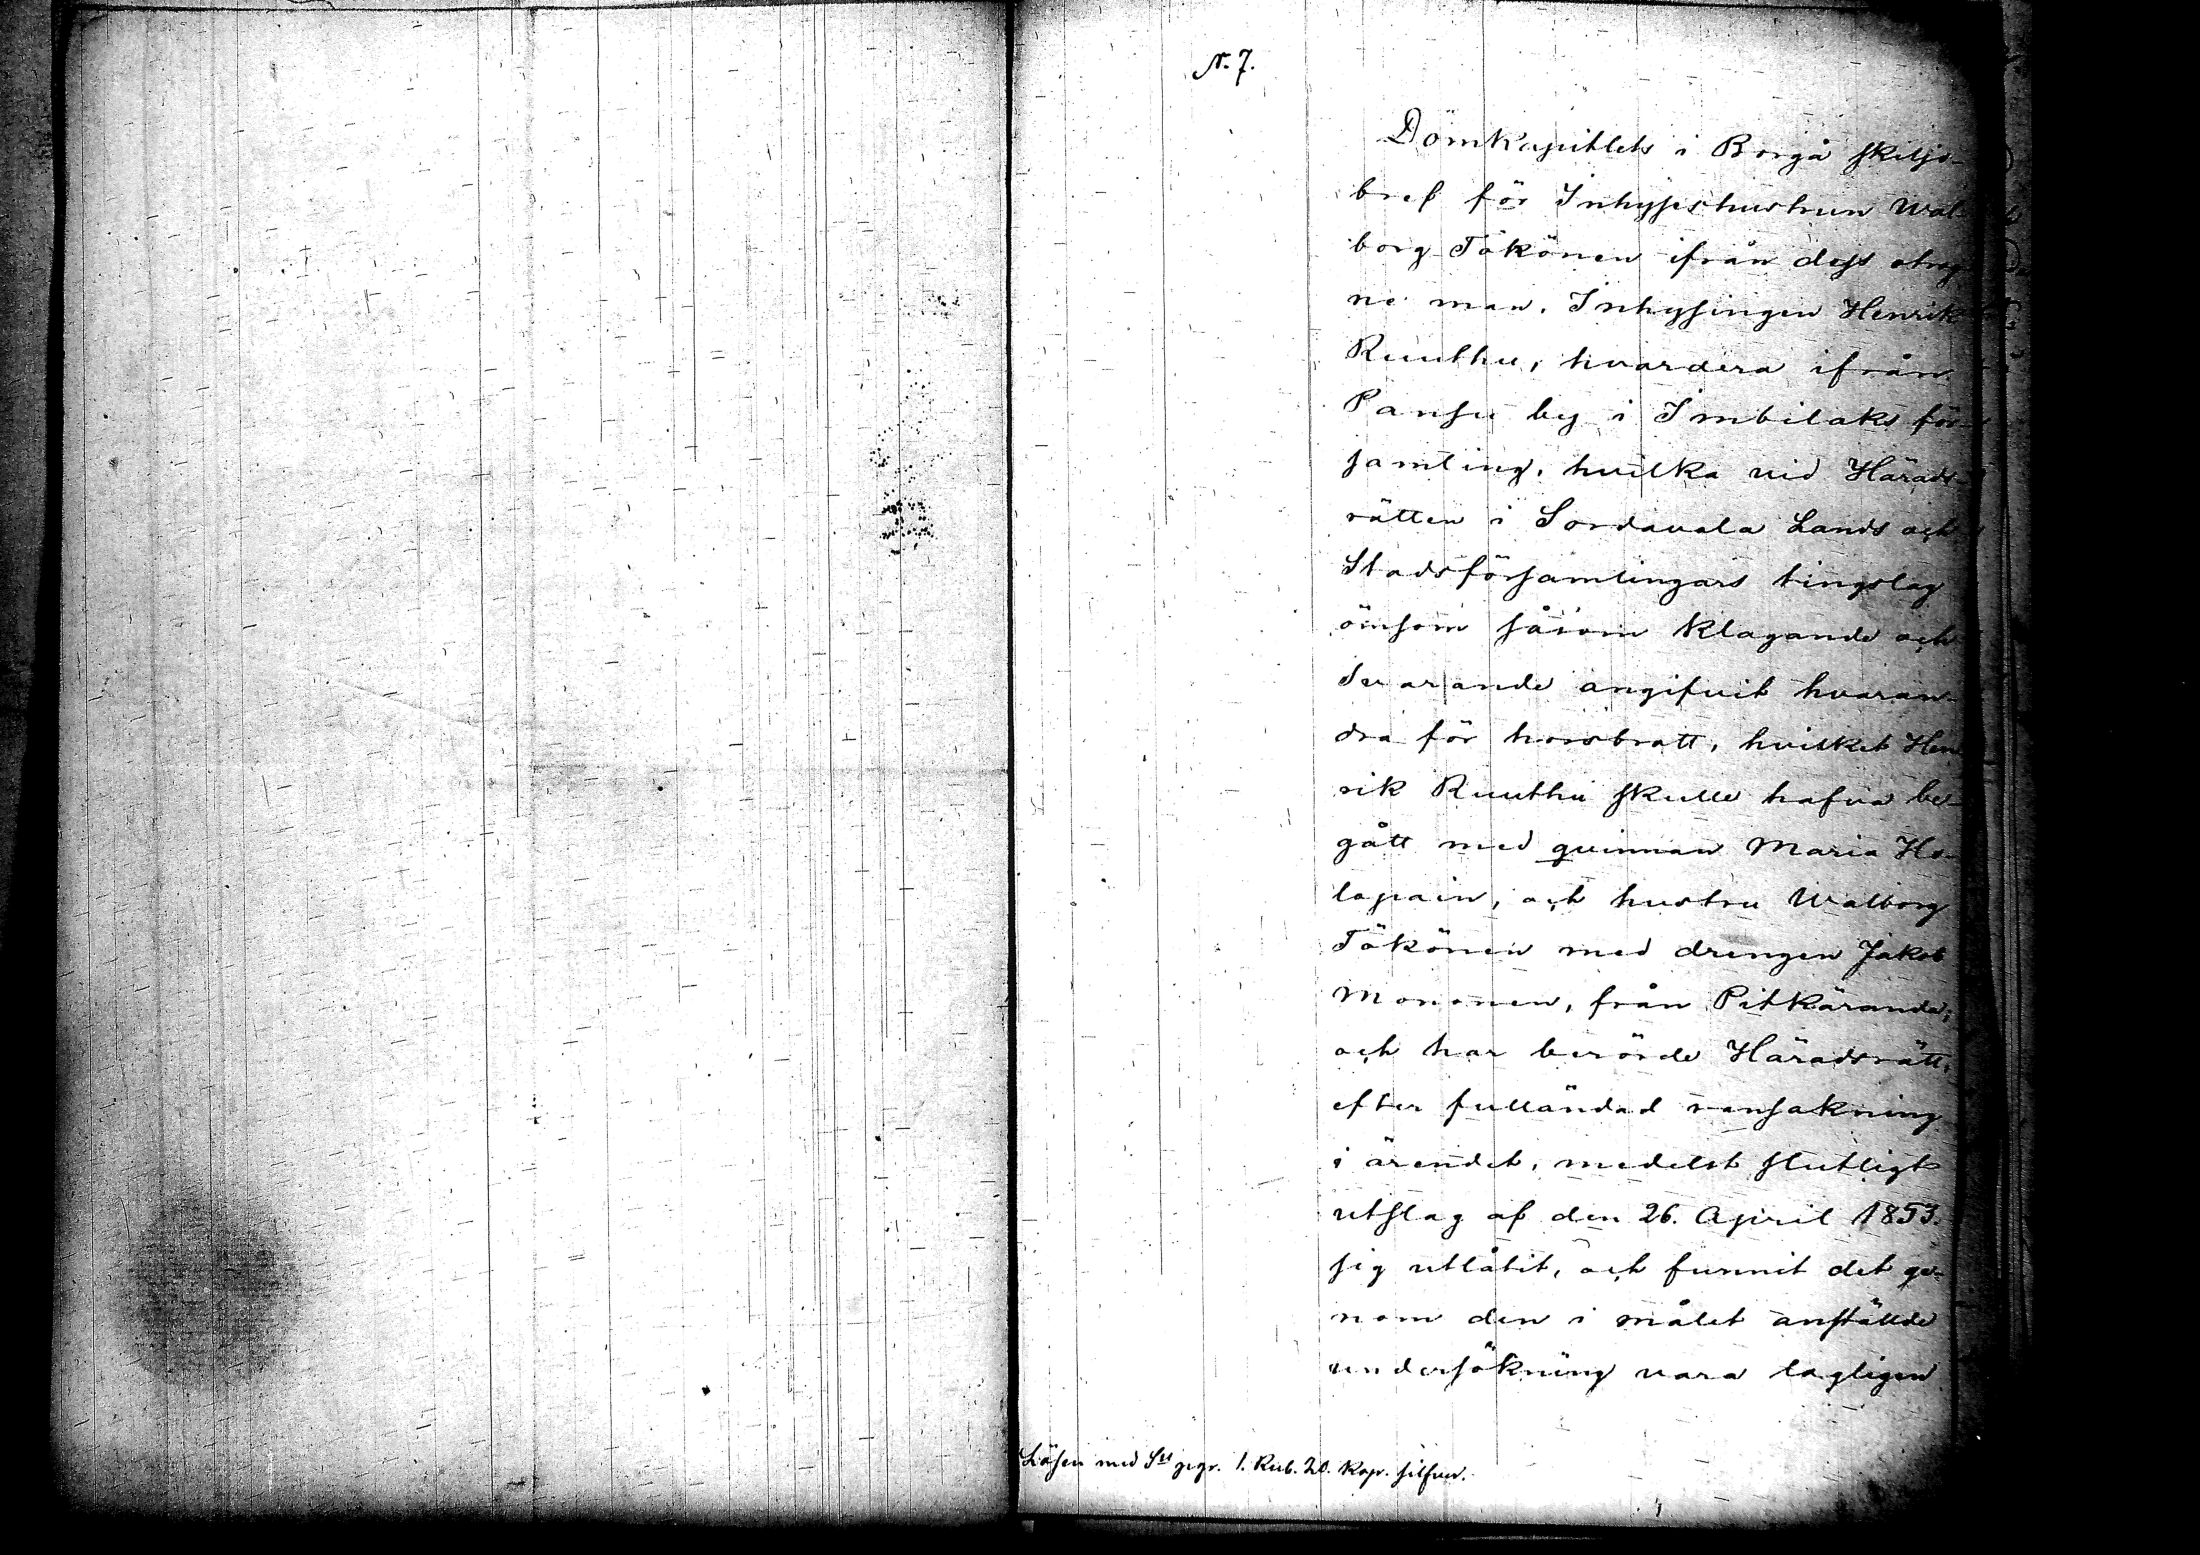 N. 7.
Domkapitlets i Borgå skiljo-
bref för Inhyseshustrun Wal-
borg Tökönen ifrån dess otrog-
ne man, Inhysingen Henrik
Ruuthu, hvardera ifrån
Pansu by i Imbilaks för-
samling, hvilka vid Härads-
rätten i Sordavala Lands och
Stadsförsamlingars tingslag
ömsom såsom klagande och
svarande angifvit hvaran-
dra för horsbrott, hvilket Hen-
rik Ruuthu skulle hafva be-
gått med qvinnan Maria Ho-
lopain, och hustru Walborg
Tökönen med drengen Jakob
Mononen, från Pitkäranda;
och har berörde Häradsrätt,
efter fulländad ransakning
i ärendet, medelst slutligt
utslag af den 26. April 1853.
sig utlåtit, och funnit det ge-
nom den i målet anstälde
undersökning vara lagligen
Lösen med 1. Rub. 20. Kop. silfver.